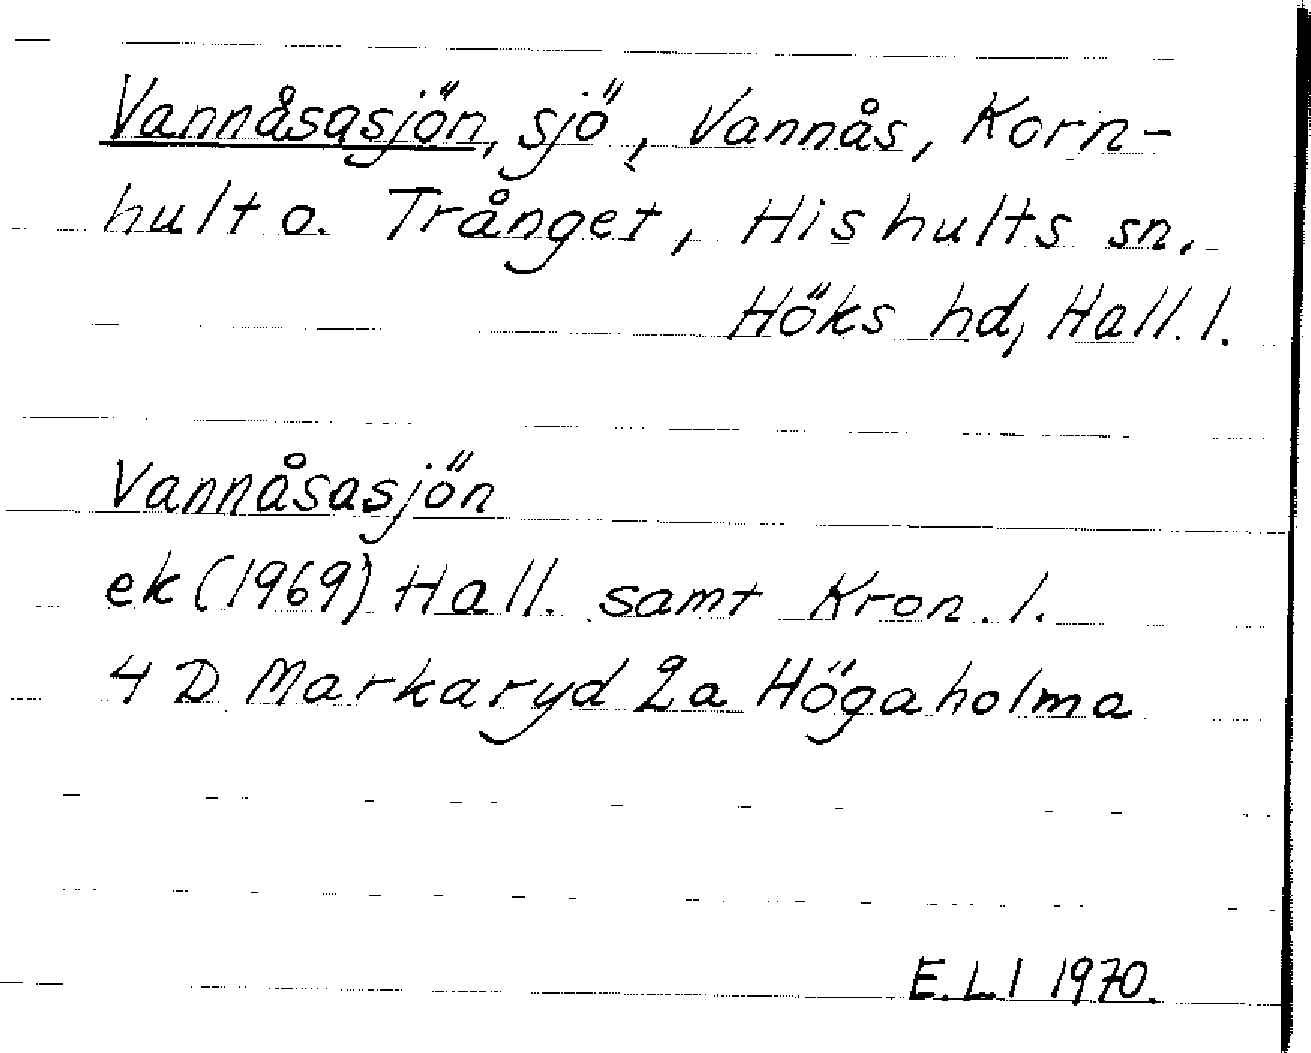 Vannåsasjön, sjö, Vannås, Korn-
hult o. Trånget, Hishults sn.
Höks hd, Hall. l.
Vannåsasjön
ek (1969) Hall. samt Kron. l.
4 D Markaryd 2a Högaholma
E.L l 1970.